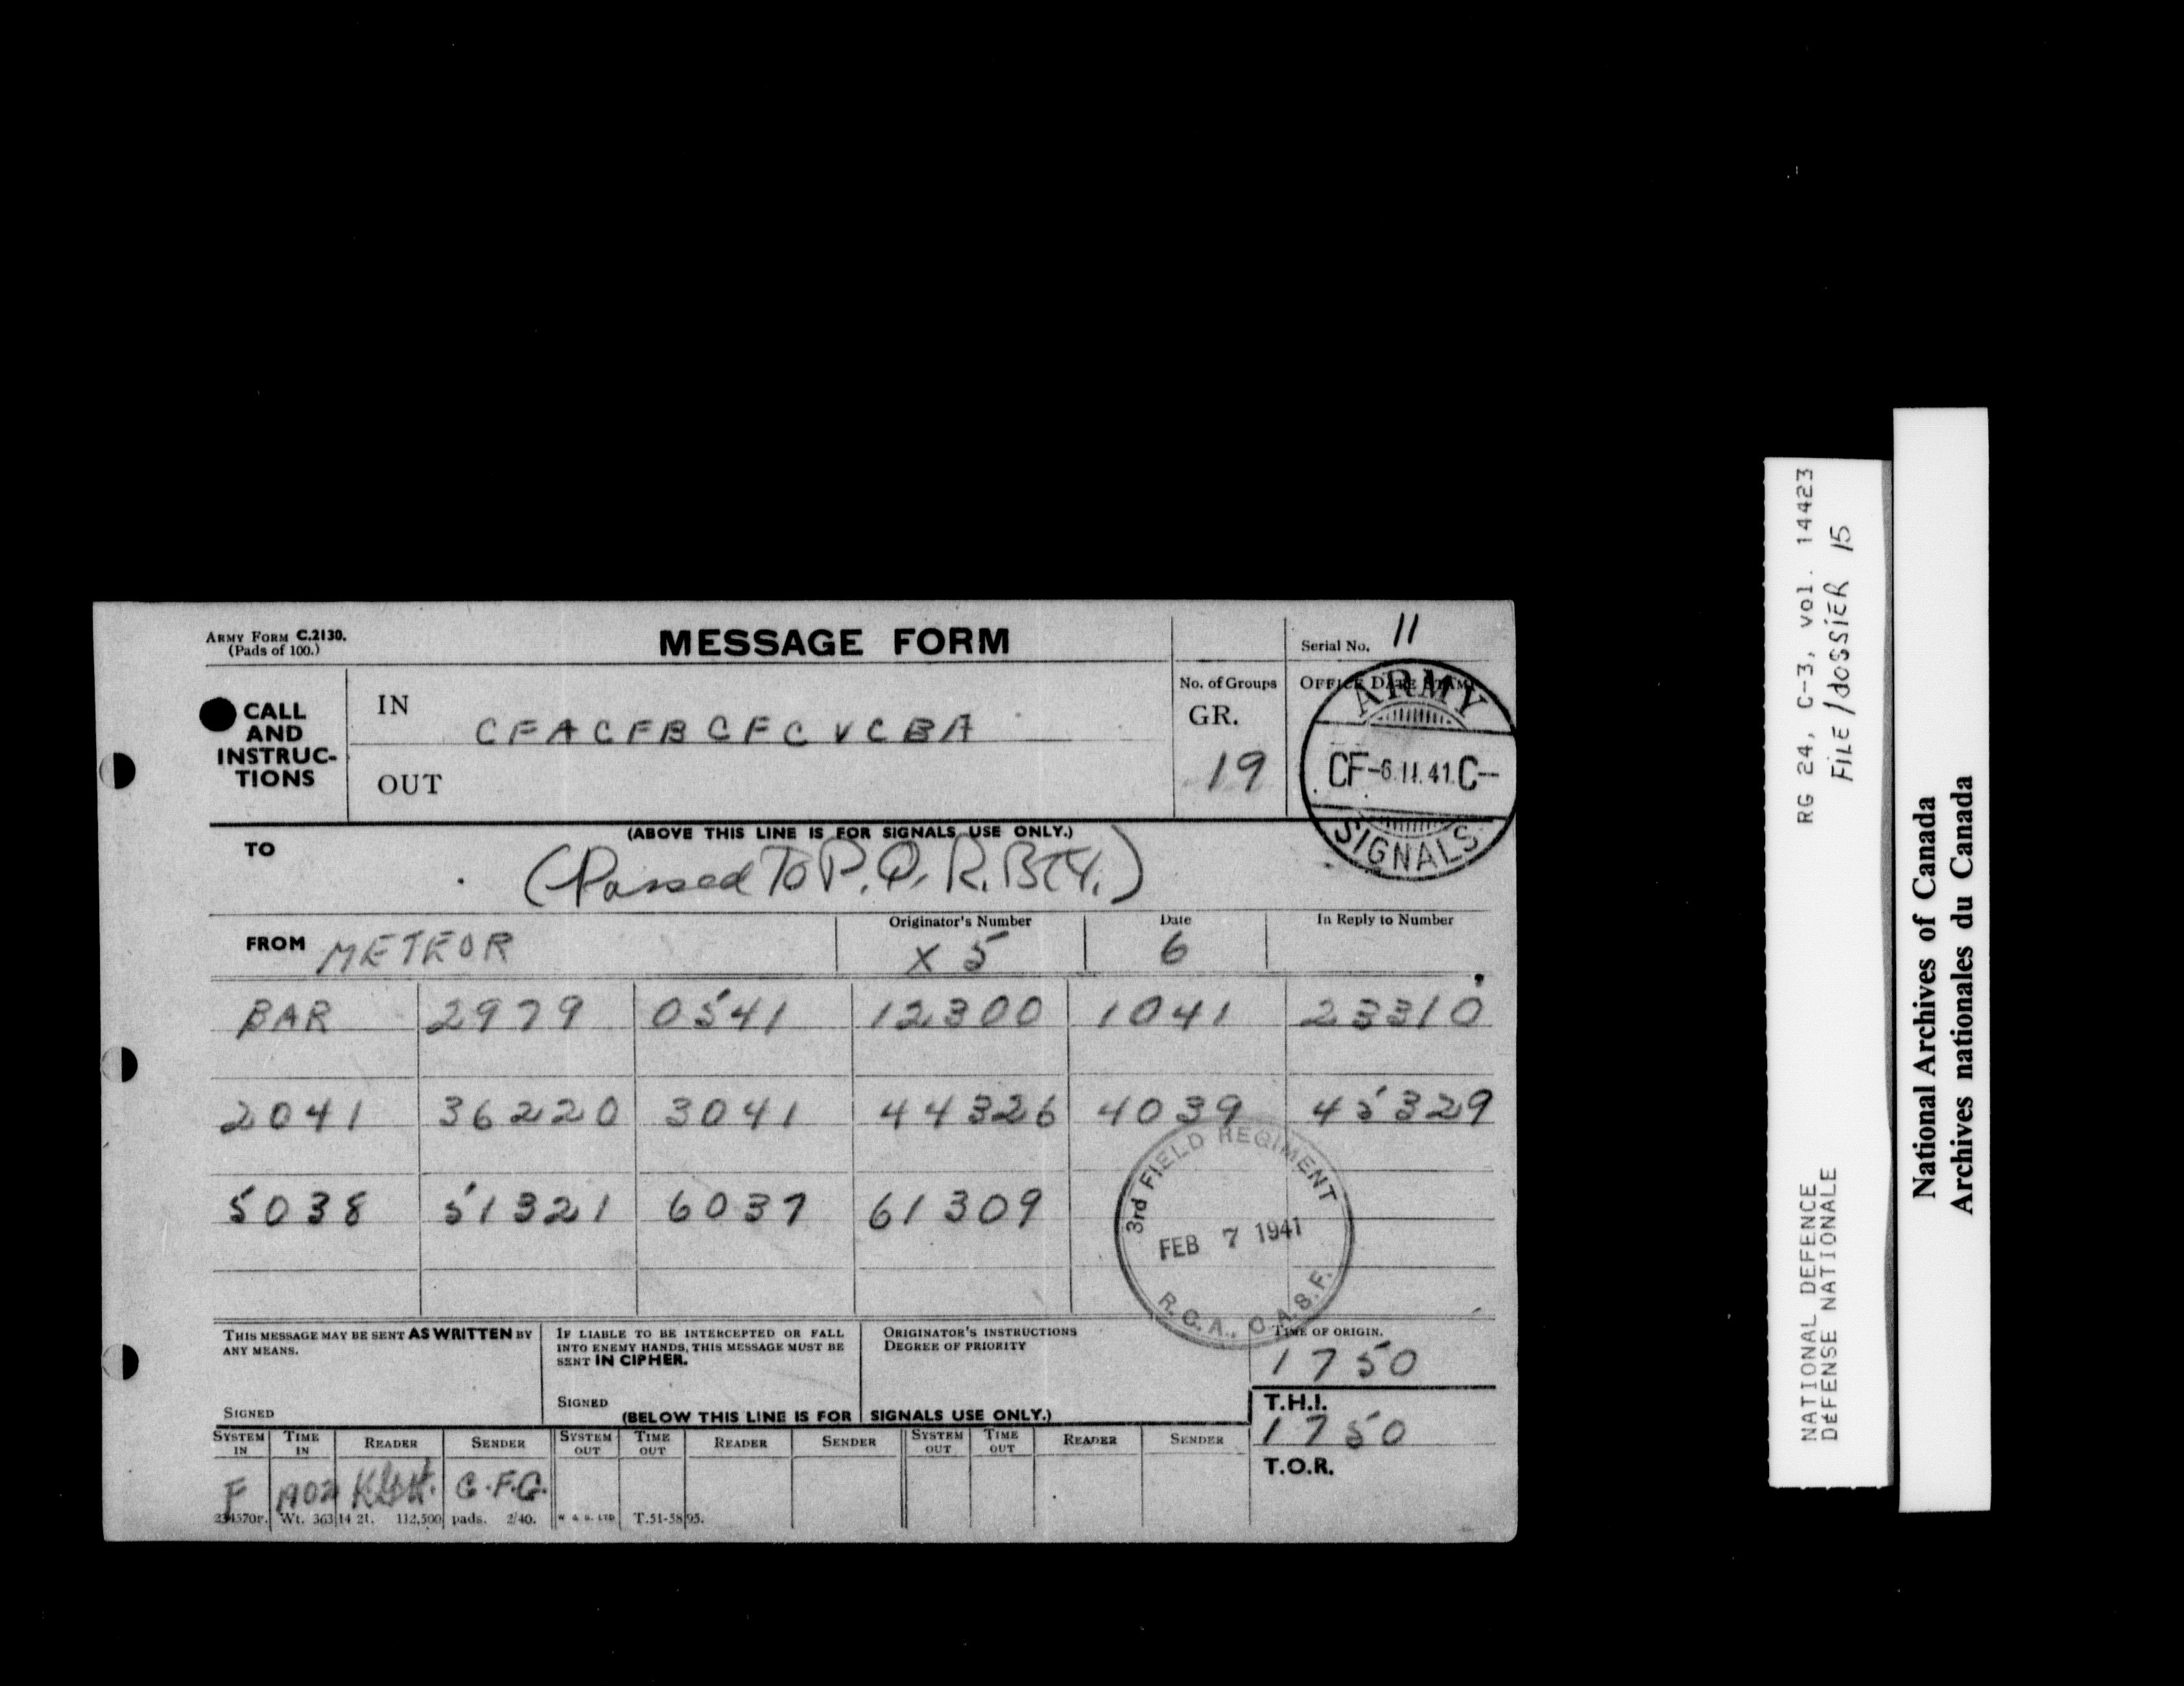 ARMY FORM C.2130.
(Pads of 100.)
MESSAGE FORM
Serial No. 11
CALL
AND
INSTRUC-
TIONS
IN
CFACFBCFC V CBA
OUT
No. of Groups
GR.
19
OFFICE DATE STAMP
ARMY
CF-6.11.41.C--
SIGNALS
(ABOVE THIS LINE IS FOR SIGNALS USE ONLY.)
TO
(Passed To P. Q. R. BTY.)
FROM METEOR
Originator's Number
X 5
Date
6
In Reply to Number
BAR 2979 0541 12300 1041 23310
2041 36220 3041 44326 4039 45329
5038 51321 6037 61309
3rd FIELD REGIMENT
FEB 7 1941
R.C.A., C.A.S.F.
THIS MESSAGE MAY BE SENT AS WRITTEN BY
ANY MEANS.
SIGNED
IF LIABLE TO BE INTERCEPTED OR FALL
INTO ENEMY HANDS, THIS MESSAGE MUST BE
SENT IN CIPHER.
SIGNED
ORIGINATOR'S INSTRUCTIONS
DEGREE OF PRIORITY
TIME OF ORIGIN.
1750
T.H.I.
1750
T.O.R.
(BELOW THIS LINE IS FOR SIGNALS USE ONLY.)
SYSTEM IN TIME IN READER SENDER SYSTEM OUT TIME OUT READER SENDER SYSTEM OUT TIME OUT READER SENDER
F 1902 C.F.C.
Wt. 36314 21. 112,500 pads. 2/40. W & S. LTD T.51-5895.
RG 24, C-3, vol. 14423
FILE/dOSSiER 15
NATIONAL DEFENCE
DÉFENSE NATIONALE
National Archives of Canada
Archives nationales du Canada